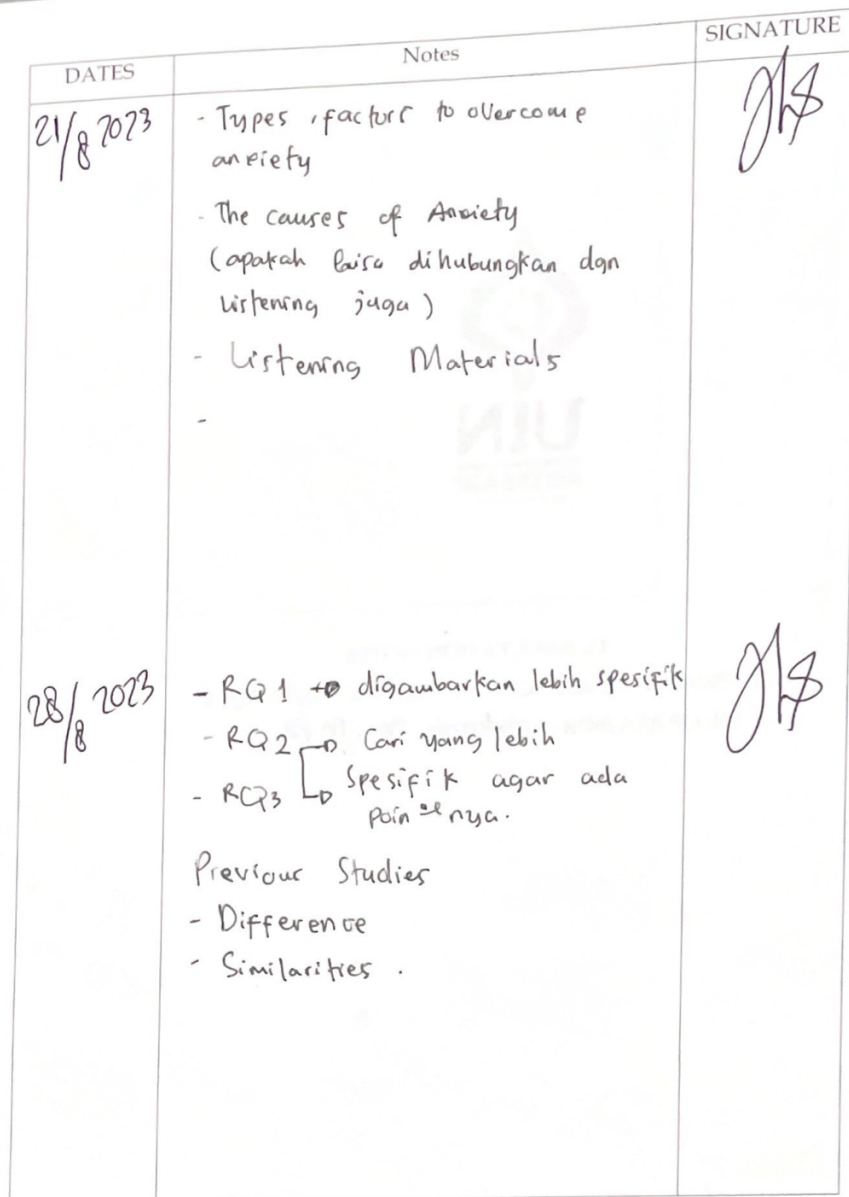 DATES Notes SIGNATURE
21/8 2023
- Types, factors to overcome
anxiety
- The causes of Anxiety
(apakah bisa dihubungkan dgn
Listening juga)
- Listening Materials
-
28/8 2023
- RQ1 → digambarkan lebih spesifik
- RQ2 → Cari yang lebih
- RQ3 → Spesifik agar ada
poin²nya.
Previous Studies
- Difference
- Similarities.
UIN